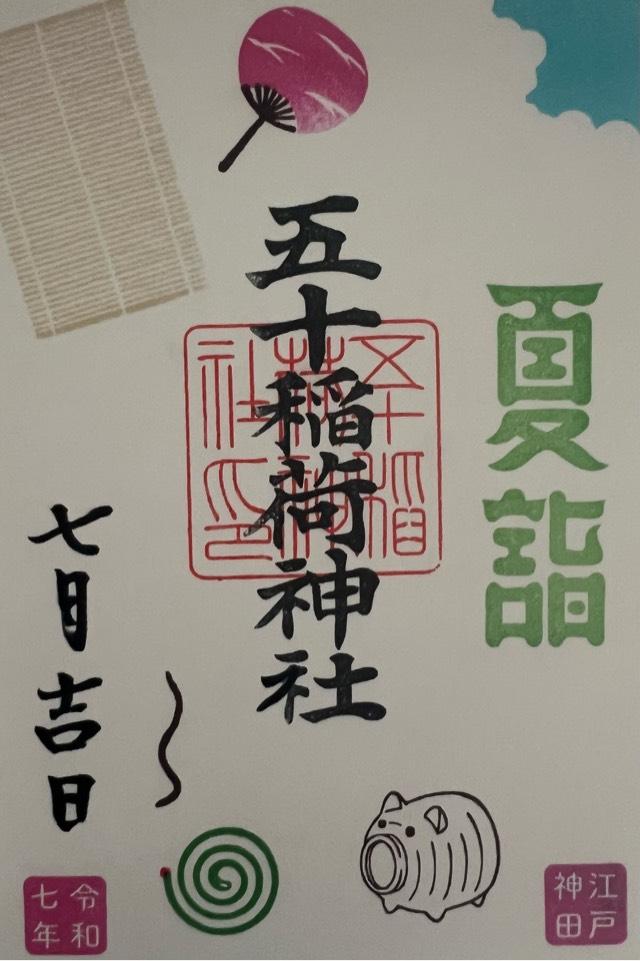 夏詣
五十稲荷神社
五十稲荷神社印
七月吉日
江戸神田
令和七年